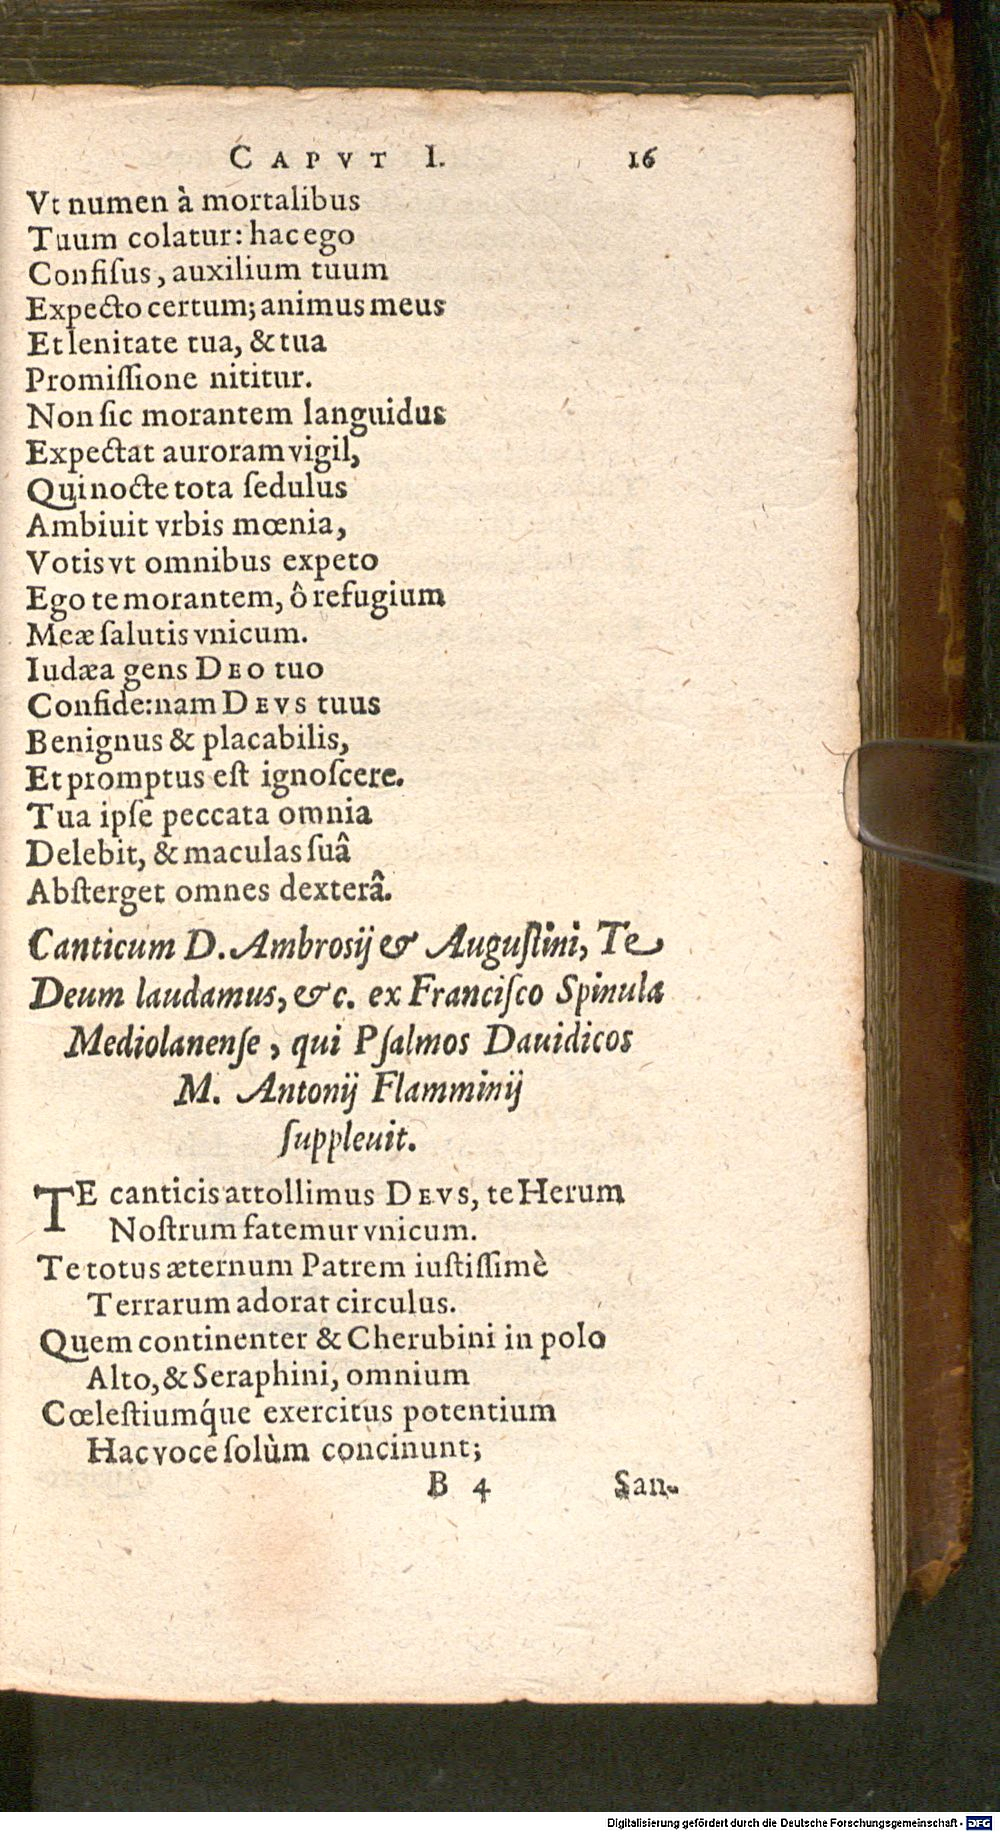 CAPVT I. 16
Vt numen à mortalibus
Tuum colatur: hac ego
Confiſus, auxilium tuum
Expecto certum; animus meus
Et lenitate tua, & tua
Promiſſione nititur.
Non ſic morantem languidus
Expectat auroram vigil,
Qui nocte tota ſedulus
Ambiuit vrbis mœnia,
Votis vt omnibus expeto
Ego te morantem, ô refugium
Meæ ſalutis vnicum.
Iudæa gens DEO tuo
Confide: nam DEVS tuus
Benignus & placabilis,
Et promptus eſt ignoſcere.
Tua ipſe peccata omnia
Delebit, & maculas ſuâ
Abſterget omnes dexterâ.
Canticum D. Ambrosij & Auguſtini, Te
Deum laudamus, &c. ex Franciſco Spinula
Mediolanenſe, qui Pſalmos Dauidicos
M. Antonij Flamminij
ſuppleuit.
TE canticis attollimus DEVS, te Herum
Noſtrum fatemur vnicum.
Te totus æternum Patrem iuſtiſſimè
Terrarum adorat circulus.
Quem continenter & Cherubini in polo
Alto, & Seraphini, omnium
Cœleſtiumq́ue exercitus potentium
Hac voce ſolùm concinunt;
B 4 San-
Digitalisierung gefördert durch die Deutsche Forschungsgemeinschaft - DFG